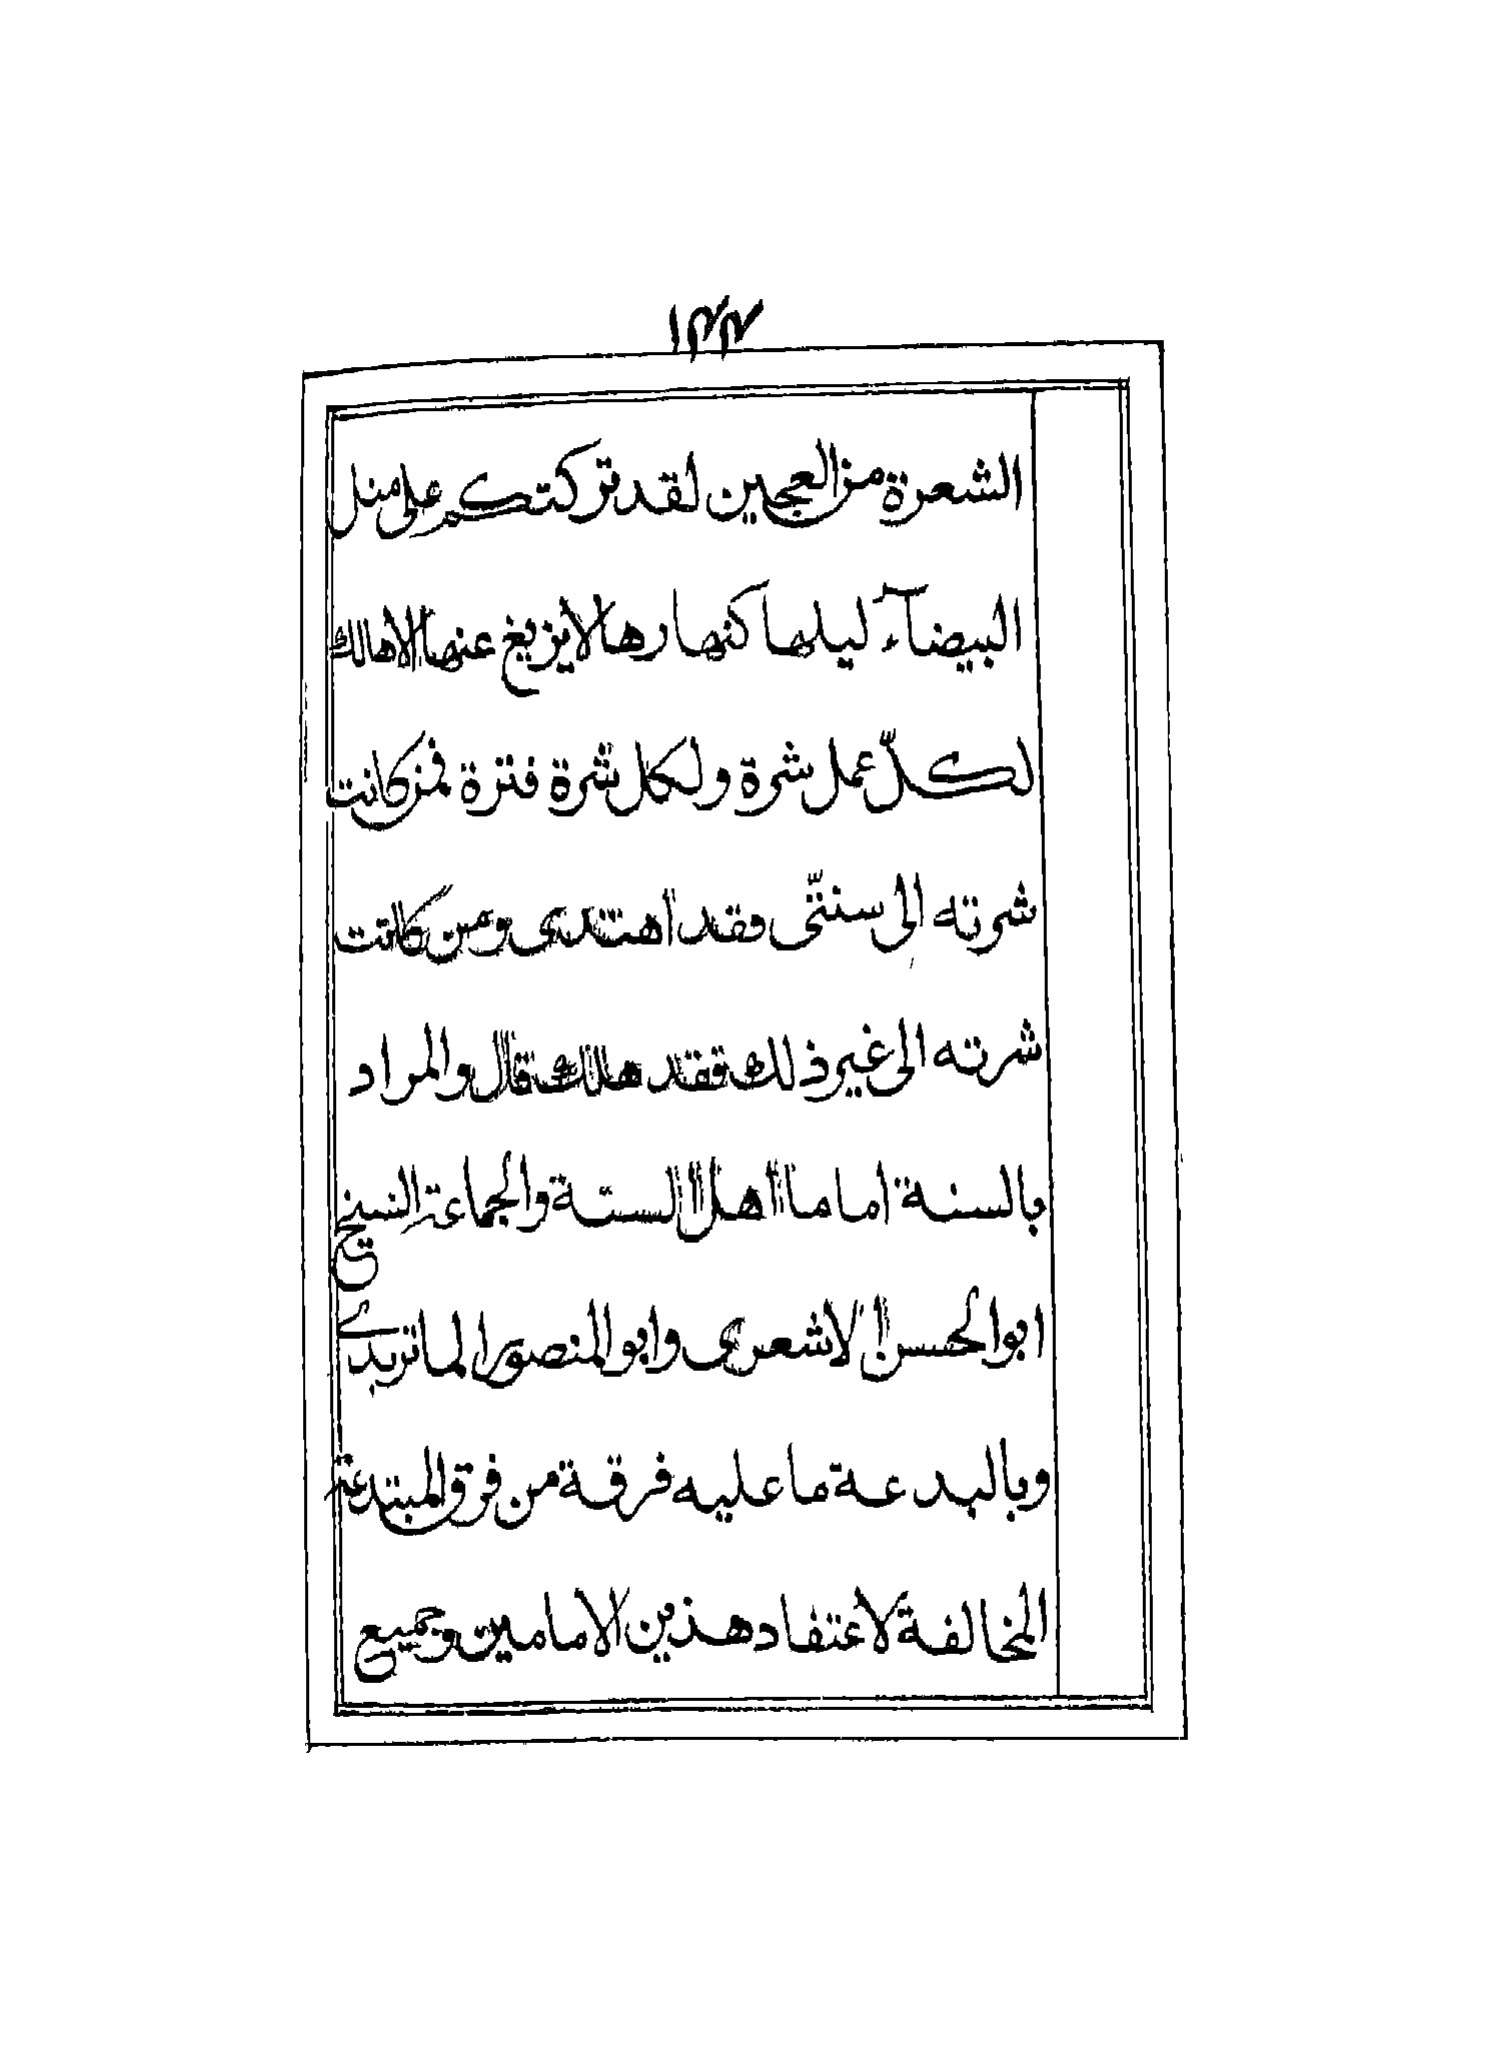 ١٣٣
الشعرة من العجين لقد تركتكم على مثل
البيضآء ليلها كنهارها لا يزيغ عنها الا هالك
لكلّ عمل شرة ولكل شرة فترة فمن كانت
شرته الى سنتّى فقد اهتدى ومن كانت
شرته الى غير ذلك فقد هلك قال والمراد
بالسنة اماما اهل السنة والجماعة الشيخ
ابوالحسن الاشعرى وابو المنصور الماتريدى
وبالبدعة ما عليه فرقة من فرق المبتدعة
المخالفة لاعتقاد هذين الامامين وجميع